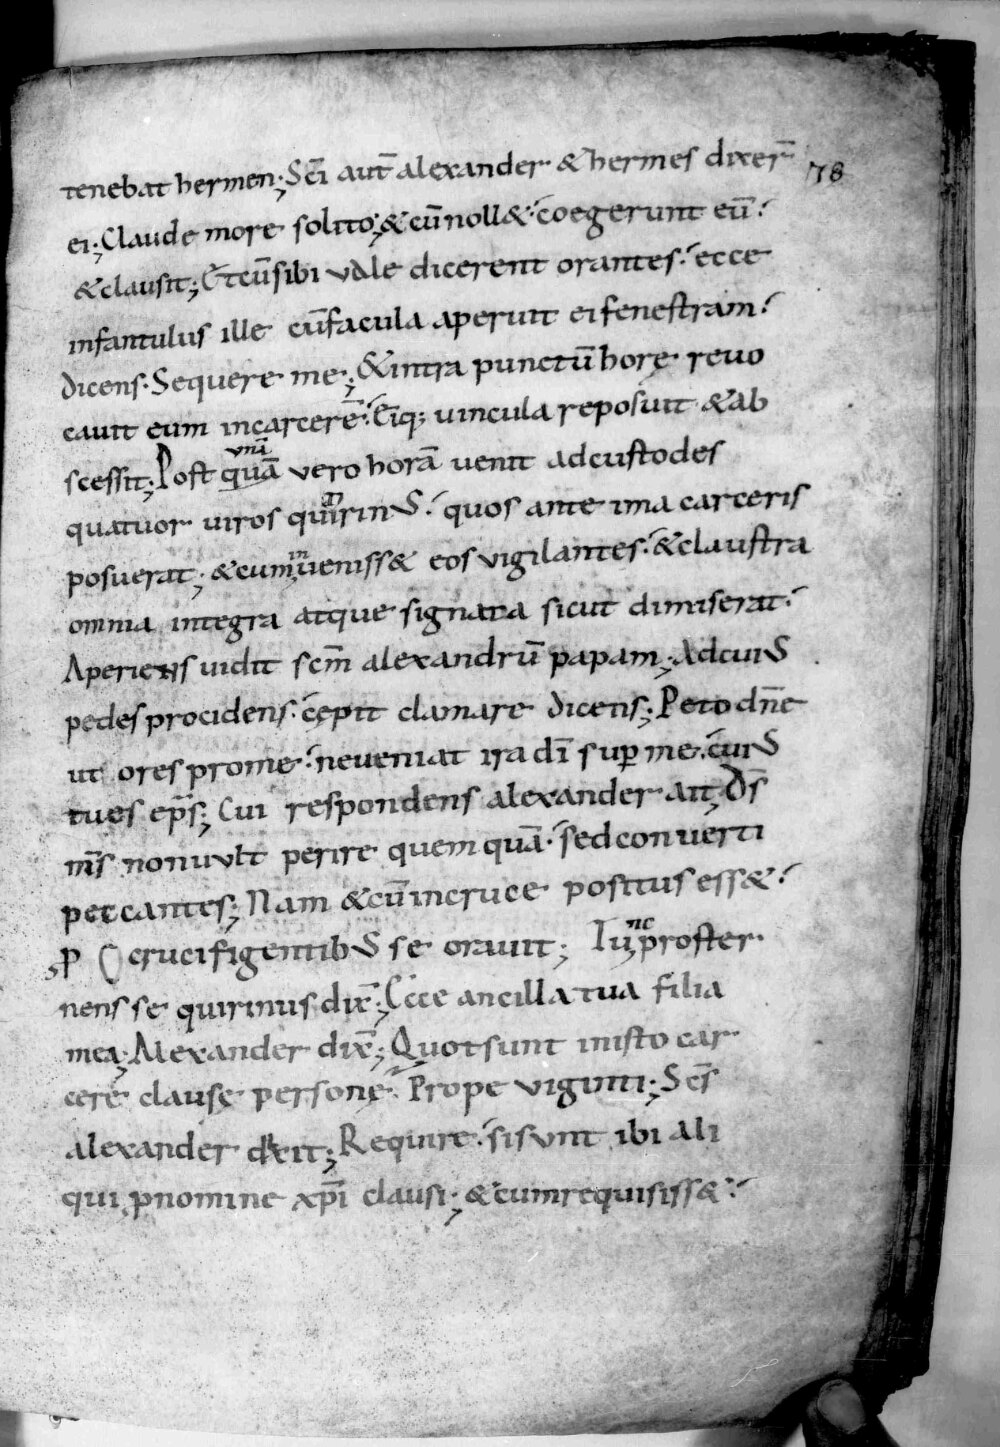 tenebat hermen; Sc̄i aut̄ alexander & hermes dixer̄
78
ei; Claude more solito; & cū noll&; coegerunt eū;
& clausit; Et cū sibi vale dicerent orantes; ecce
infantulus ille cū facula aperuit ei fenestram;
dicens. Sequere me; & intra punctū horę revo
cavit eum in carcerē; Eiq; vincula reposuit & ab
scessit; Post quā vero horā venit ad custodes
unā
quatuor viros quirinus; quos ante ima carceris
posuerat; & cum inveniss& eos vigilantes; & claustra
omnia integra atque signata sicut dimiserat;
Aperiens vidit sc̄m alexandrū papam; Ad cuius
pedes procidens; cępit clamare dicens; Peto dn̄e
ut ores pro me; ne veniat ira dī sup me; cuius
tu es ep̄s; Cui respondens alexander ait; Ds̄
ms̄ non vult perire quemquā; sed converti
peccantes; Nam & cū in cruce positus ess&;
ꝓ crucifigentibus se oravit; Tunc proster
nens se quirinus dix̄; Ecce ancilla tua filia
mea; Alexander dix̄; Quot sunt in isto car
cere clausę personę; Prope viginti; Scs̄
alexander dixit; Require; si sunt ibi ali
qui ꝓ nomine xp̄i clausi; & cum requisiss&;